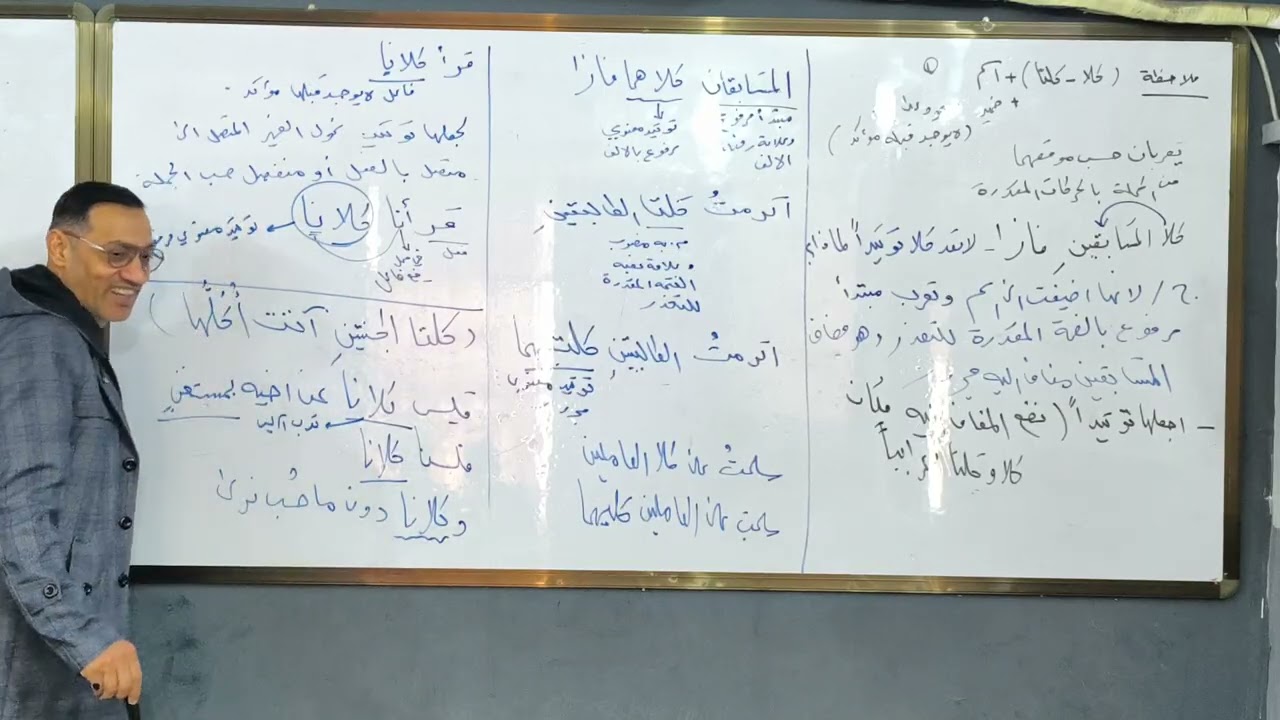 ملاحظة ( كلا - كلتا ) + اسم ①
+ ضمير
( لا يوجد قبله مؤكد )
يعربان حسب موقعهما
من الجملة بالحركات المقدرة
كلا المتسابقين فازا - لا تعد كلا توكيداً لماذا؟
ج / لانها اضيفت الى اسم وتعرب مبتدأ
مرفوع بالضمة المقدرة للتعذر وهو مضاف
المتسابقين مضاف اليه مجرور
- اجعلها توكيداً ( نضع المضاف اليه مكان
كلا وكلتا
المتسابقان كلاهما فازا
مبتدأ مرفوع
وعلامة رفعه
الالف
توكيد معنوي
مرفوع بالالف
اكرمتُ كلتا الطالبتينِ
م. به منصوب
وعلامة نصبه
الفتحة المقدرة
للتعذر
اكرمتُ الطالبتينِ كلتيهما
توكيد معنوي
سلمتُ على كلا العاملين
سلمت على العاملين كليهما
قرأ كلانا
فاعل لا يوجد قبلها مؤكد
نجعلها توكيد نحول الضمير المتصل الى
متصل بالفعل أو منفصل حسب الجملة
قرأنا كلانا
توكيد معنوي
فعل
فاعل
( وكلتا الجنتينِ آتت أُكُلُها )
فليس كلانا عن اخيه بمستغنٍ
تعرب اسم ليس
فلسنا كلانا
وكلانا دون ما حُب نرى